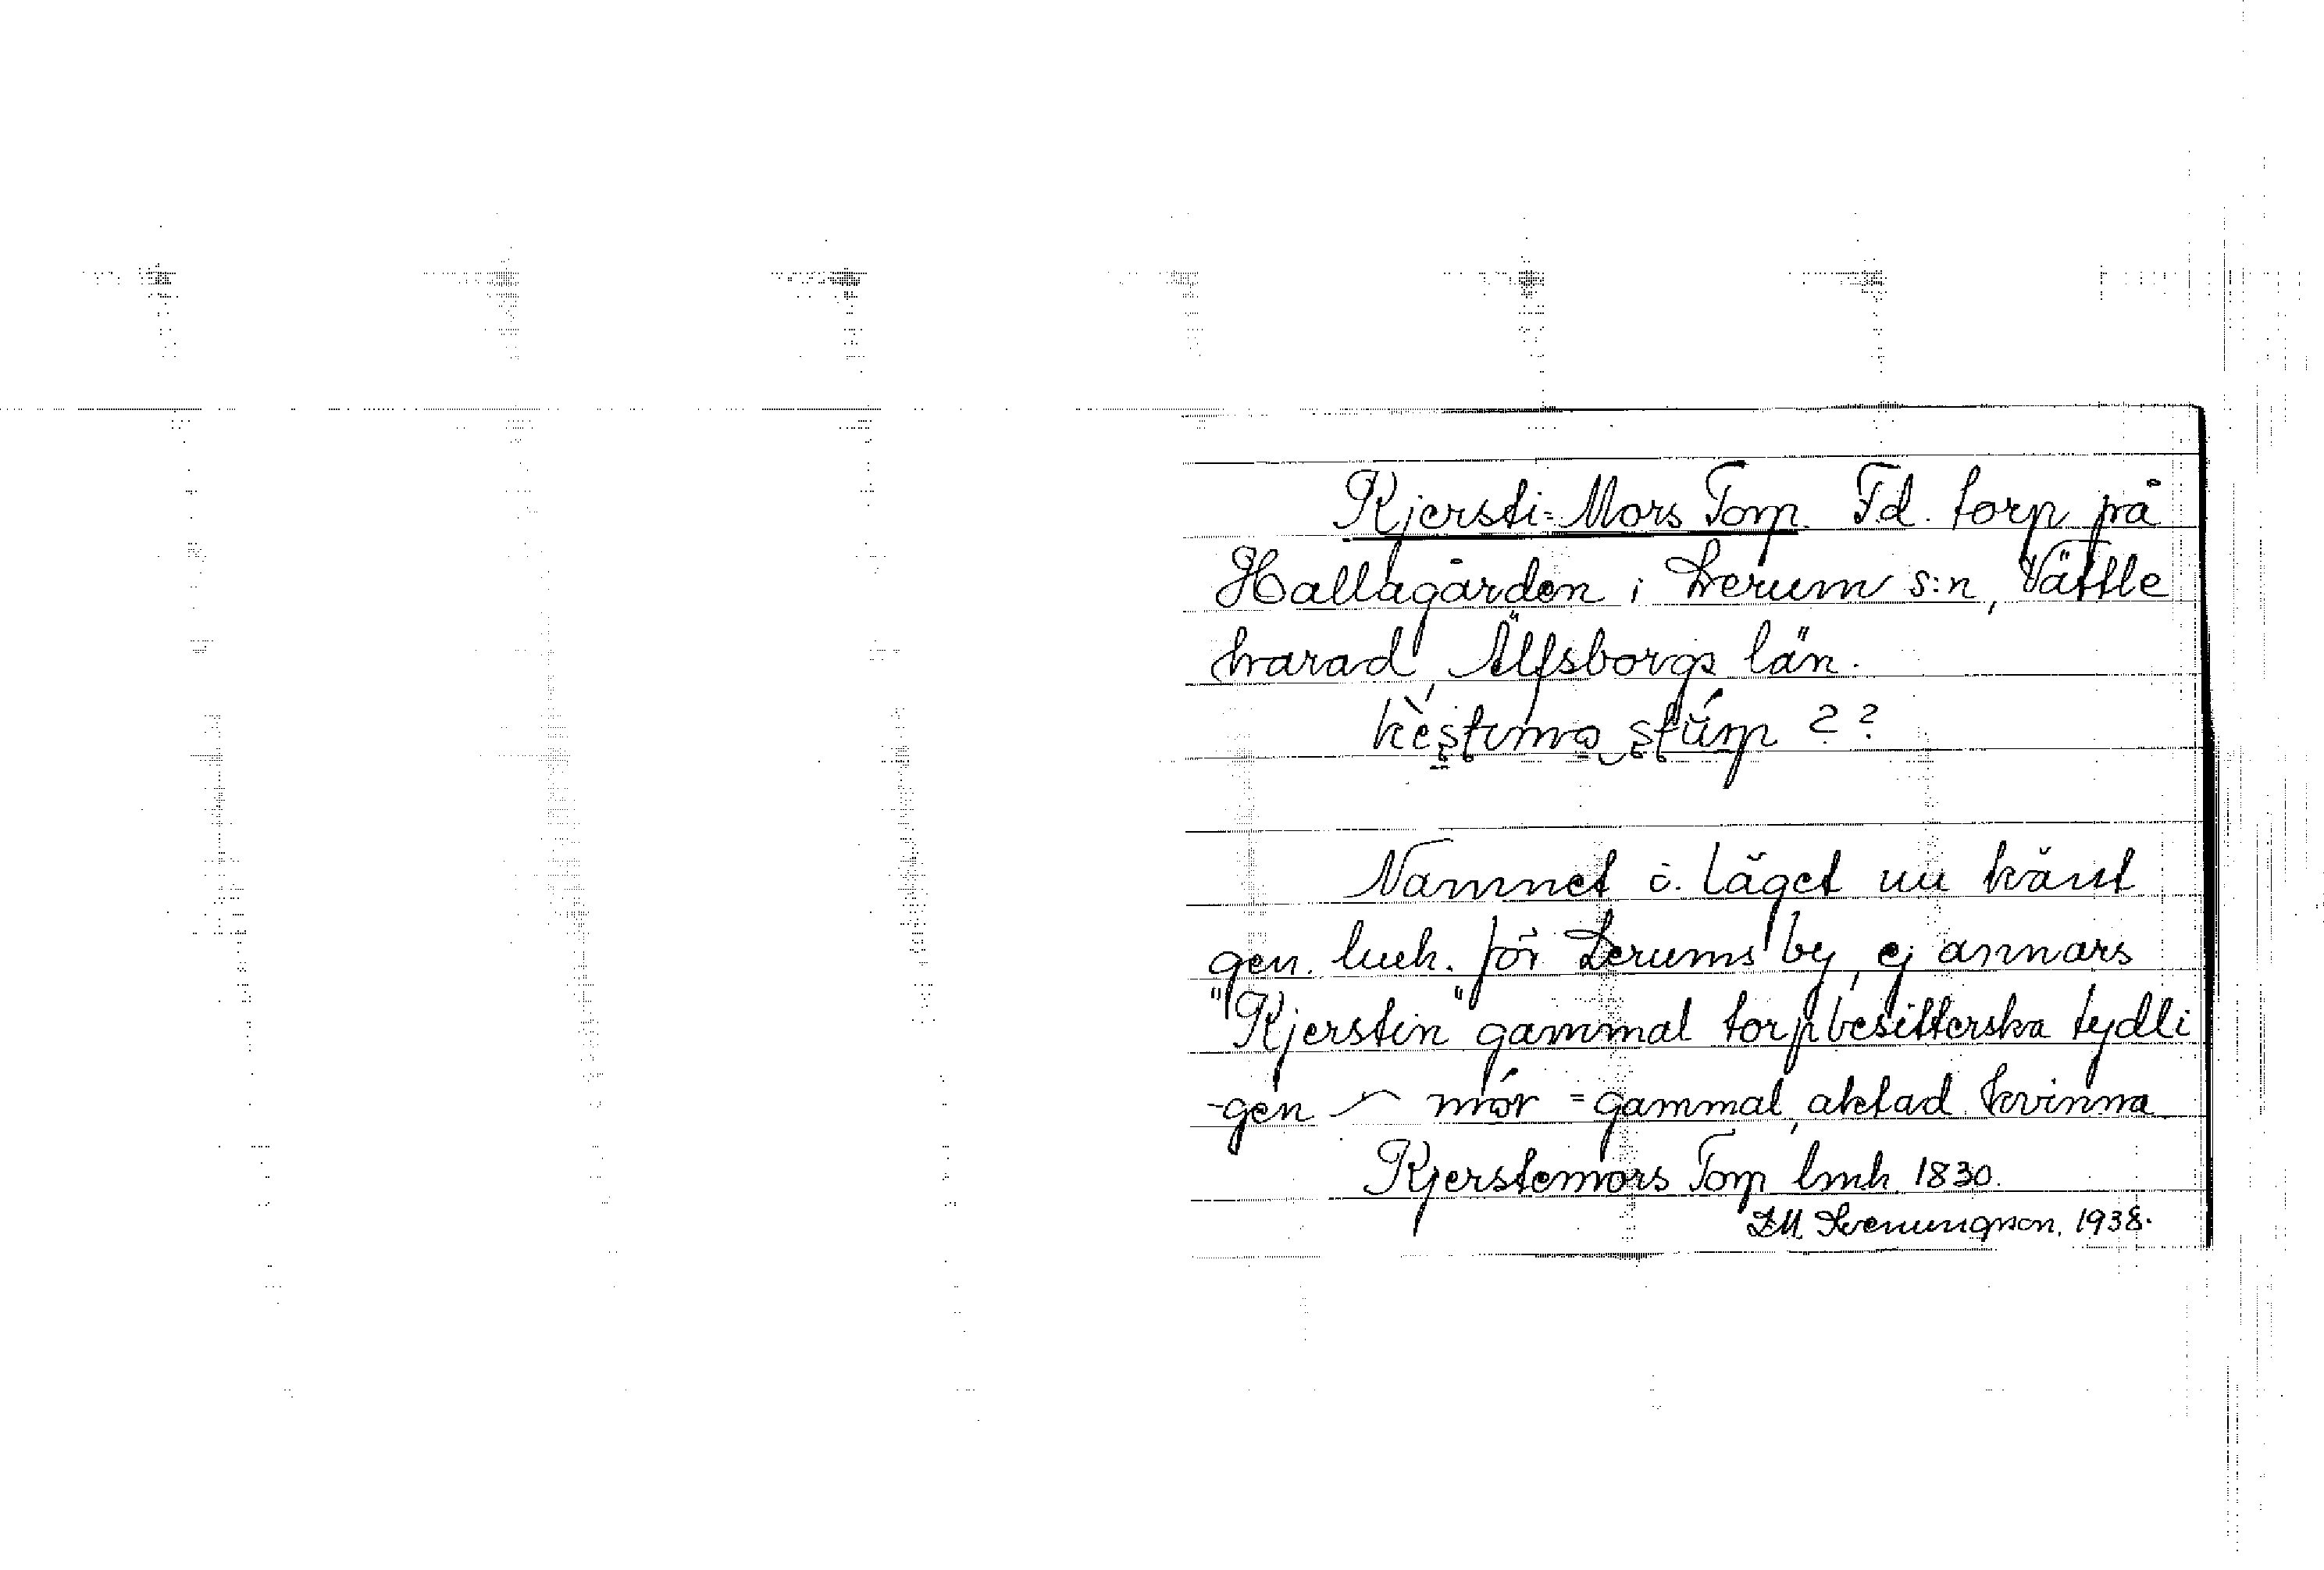 Kjersti-Mors Torp. Fd. torp på
Hallagården i Lerum s:n, Vättle
härad, Älfsborgs län.
??
Namnet o. läget nu känt
gen. lmk. för Lerums by, ej annars
"Kjerstin" gammal torpbesitterska tydli
-gen mor = gammal, aktad kvinna
Kjerstemors Torp lmk. 1830.
1938.